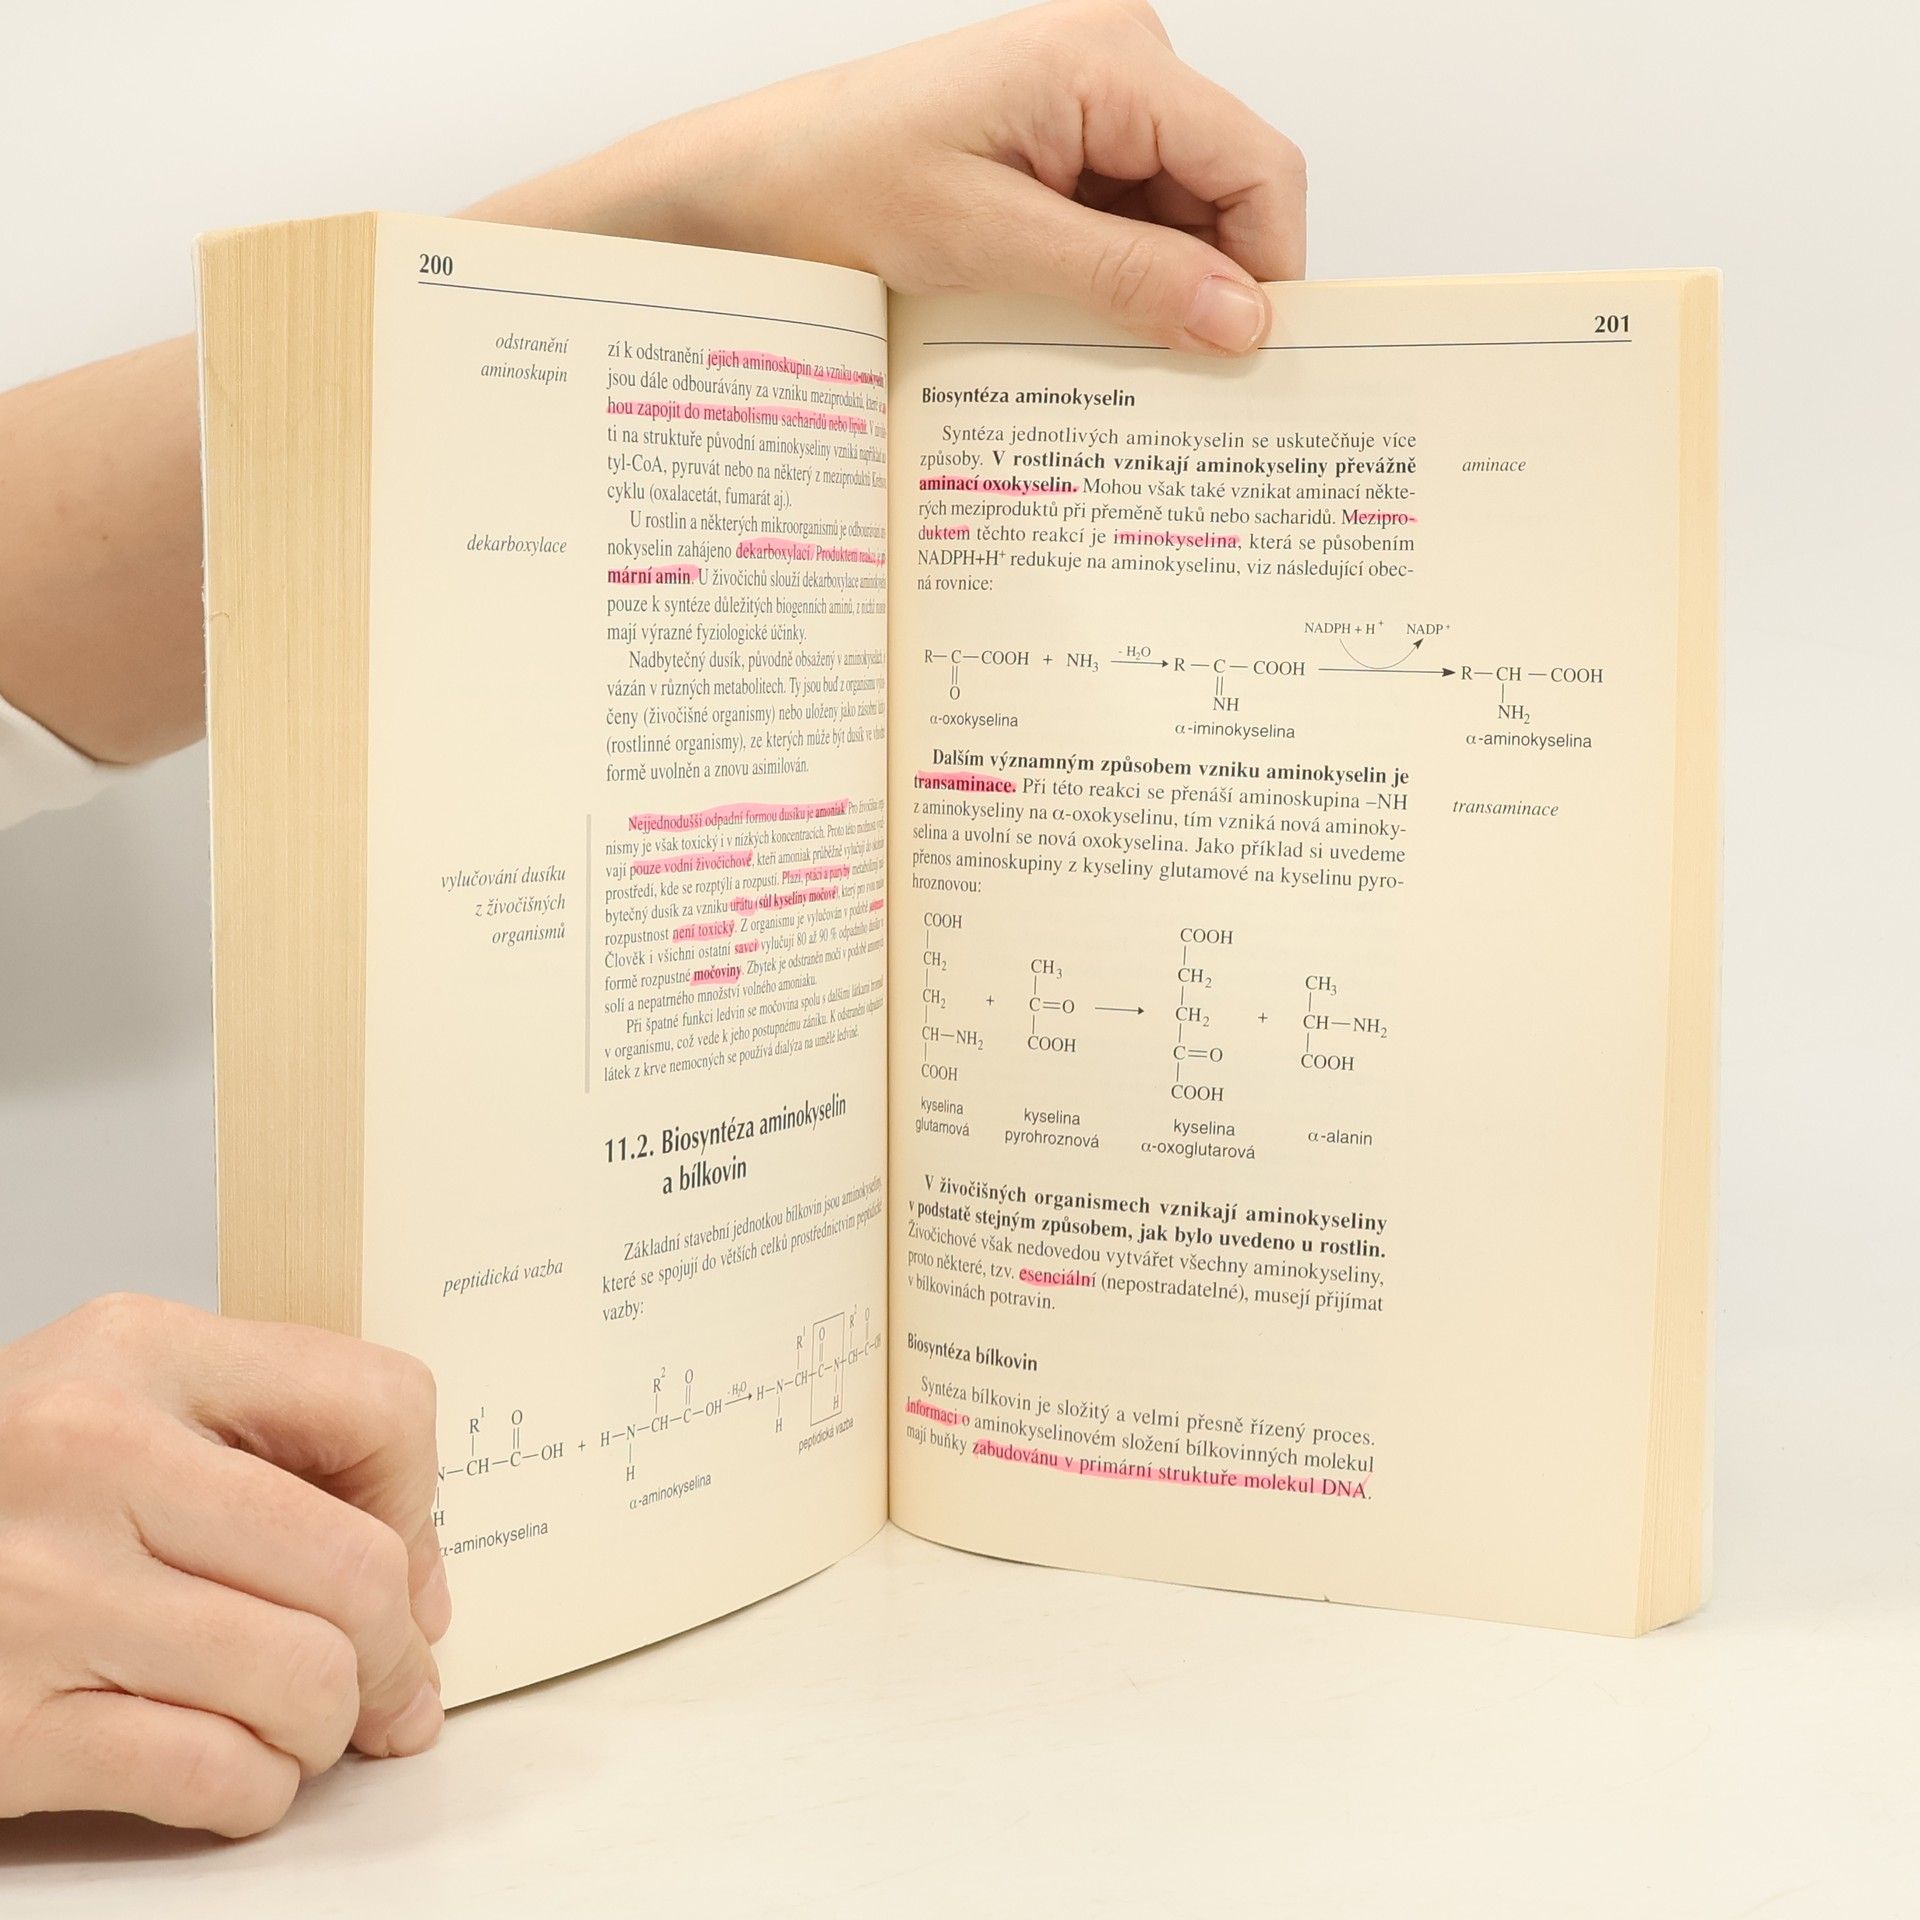 200
odstranění
aminoskupin
zí k odstranění jejich aminoskupin za vzniku
jsou dále odbourávány za vzniku meziproduktů, které
hou zapojit do metabolismu sacharidů nebo lipidů. V
ti na struktuře původní aminokyseliny vzniká například
tyl-CoA, pyruvát nebo na některý z meziproduktů
cyklu (oxalacetát, fumarát aj.).
dekarboxylace
U rostlin a některých mikroorganismů je odbourávání
nokyselin zahájeno dekarboxylací. Produktem reakce je
mární amin. U živočichů slouží dekarboxylace
pouze k syntéze důležitých biogenních aminů, z nichž
mají výrazné fyziologické účinky.
Nadbytečný dusík, původně obsažený v aminokyselinách,
vázán v různých metabolitech. Ty jsou buď z organismu
čeny (živočišné organismy) nebo uloženy jako zásobní
(rostlinné organismy), ze kterých může být dusík ve
formě uvolněn a znovu asimilován.
vylučování dusíku
z živočišných
organismů
Nejjednodušší odpadní formou dusíku je amoniak. Pro
nismy je však toxický i v nízkých koncentracích. Proto této možnosti
vají pouze vodní živočichové, kteří amoniak průběžně vylučují do
prostředí, kde se rozptýlí a rozpustí. Plazi, ptáci a paryby
bytečný dusík za vzniku urátu (sůl kyseliny močové), který pro svou
rozpustnost není toxický. Z organismu je vylučován v podobě
Člověk i všichni ostatní savci vylučují 80 až 90 % odpadního dusíku v
formě rozpustné močoviny. Zbytek je odstraněn močí v podobě
solí a nepatrného množství volného amoniaku.
Při špatné funkci ledvin se močovina spolu s dalšími látkami
v organismu, což vede k jeho postupnému zániku. K odstranění
látek z krve nemocných se používá dialýza na umělé ledvině.
11.2. Biosyntéza aminokyselin
a bílkovin
peptidická vazba
Základní stavební jednotkou bílkovin jsou aminokyseliny,
které se spojují do větších celků prostřednictvím peptidické
vazby:
R¹ O R² O R¹ O R² O
N—CH—C—OH + H—N—CH—C—OH - H₂O H—N—CH—C—N—CH—C—OH
H H H H
α-aminokyselina α-aminokyselina peptidická vazba
201
Biosyntéza aminokyselin
Syntéza jednotlivých aminokyselin se uskutečňuje více
způsoby. V rostlinách vznikají aminokyseliny převážně
aminací oxokyselin. Mohou však také vznikat aminací někte-
rých meziproduktů při přeměně tuků nebo sacharidů. Mezipro-
duktem těchto reakcí je iminokyselina, která se působením
NADPH+H⁺ redukuje na aminokyselinu, viz následující obec-
ná rovnice:
aminace
NADPH + H⁺ NADP⁺
R—C—COOH + NH₃ - H₂O R—C—COOH R—CH—COOH
O NH NH₂
α-oxokyselina α-iminokyselina α-aminokyselina
Dalším významným způsobem vzniku aminokyselin je
transaminace. Při této reakci se přenáší aminoskupina –NH
z aminokyseliny na α-oxokyselinu, tím vzniká nová aminoky-
selina a uvolní se nová oxokyselina. Jako příklad si uvedeme
přenos aminoskupiny z kyseliny glutamové na kyselinu pyro-
hroznovou:
transaminace
COOH COOH
CH₂ CH₃ CH₂ CH₃
CH₂ + C=O CH₂ + CH—NH₂
CH—NH₂ COOH C=O COOH
COOH COOH
kyselina kyselina kyselina α-alanin
glutamová pyrohroznová α-oxoglutarová
V živočišných organismech vznikají aminokyseliny
v podstatě stejným způsobem, jak bylo uvedeno u rostlin.
Živočichové však nedovedou vytvářet všechny aminokyseliny,
proto některé, tzv. esenciální (nepostradatelné), musejí přijímat
v bílkovinách potravin.
Biosyntéza bílkovin
Syntéza bílkovin je složitý a velmi přesně řízený proces.
Informaci o aminokyselinovém složení bílkovinných molekul
mají buňky zabudovánu v primární struktuře molekul DNA.